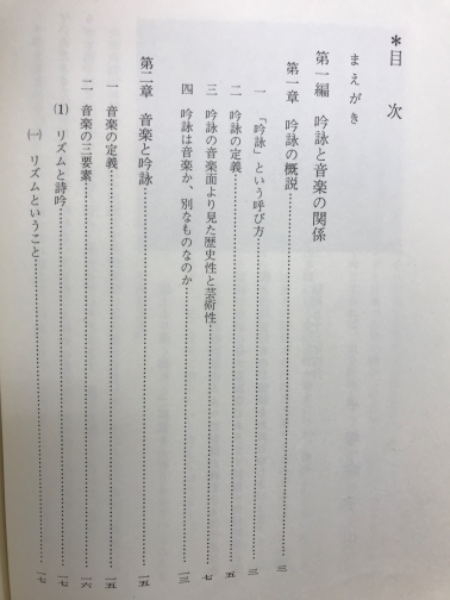 *目次
まえがき
第一編 吟詠と音楽の関係
第一章 吟詠の概説……三
一 「吟詠」という呼び方……三
二 吟詠の定義……五
三 吟詠の音楽面より見た歴史性と芸術性……七
四 吟詠は音楽か、別なものなのか……一三
第二章 音楽と吟詠……一五
一 音楽の定義……一五
二 音楽の三要素……一六
(1) リズムと詩吟……一七
(一) リズムということ……一七